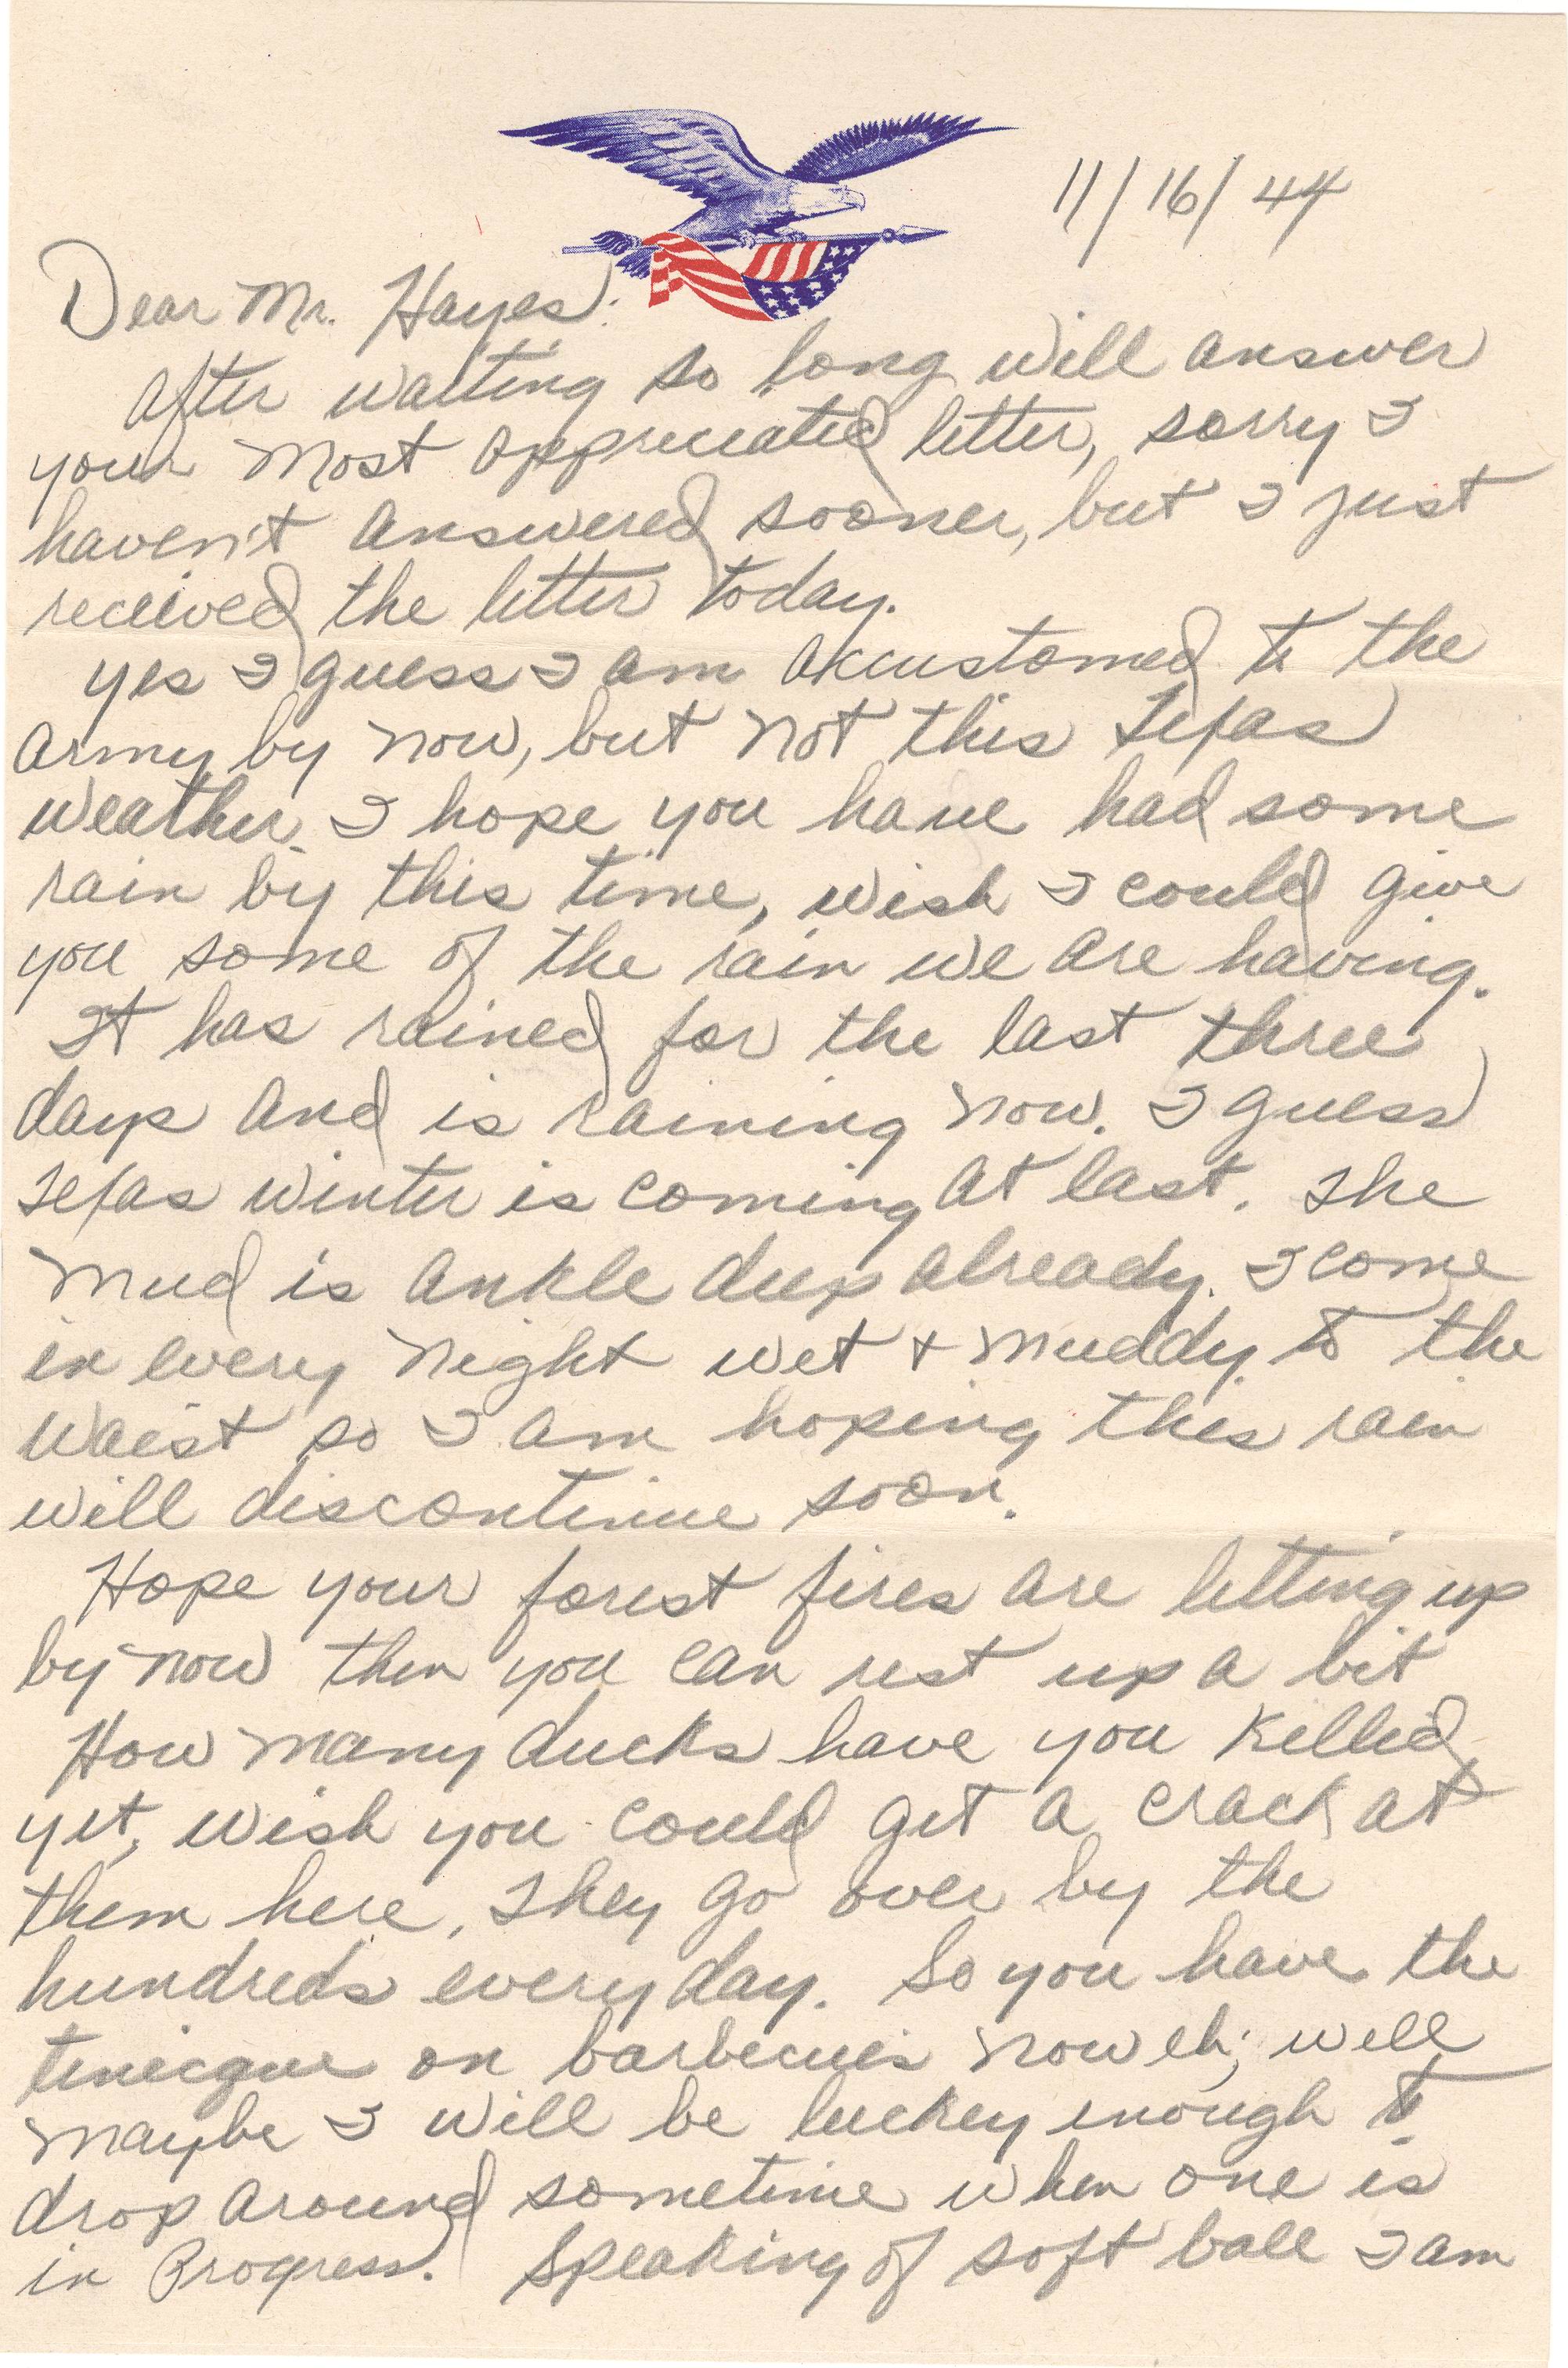 11/16/44
Dear Mr. Hayes:
After waiting so long will answer
your most appreciated letter, sorry I
haven't answered sooner, but I just
received the letter today.
yes I guess I am accustomed to the
army by now, but not this Texas
weather. I hope you have had some
rain by this time, wish I could give
you some of the rain we are having.
It has rained for the last three
days and is raining now. I guess
Texas winter is coming at last. The
mud is ankle deep already. I come
in every night wet + muddy to the
waist so I am hoping this rain
will discontinue soon.
Hope your forest fires are letting up
by now then you can rest up a bit
How many ducks have you killed
yet, wish you could get a crack at
them here, They go over by the
hundreds every day. So you have the
tinicque on barbecues now eh; well
maybe I will be luckey enough to
drop around sometime when one is
in Progress. Speaking of soft ball I am